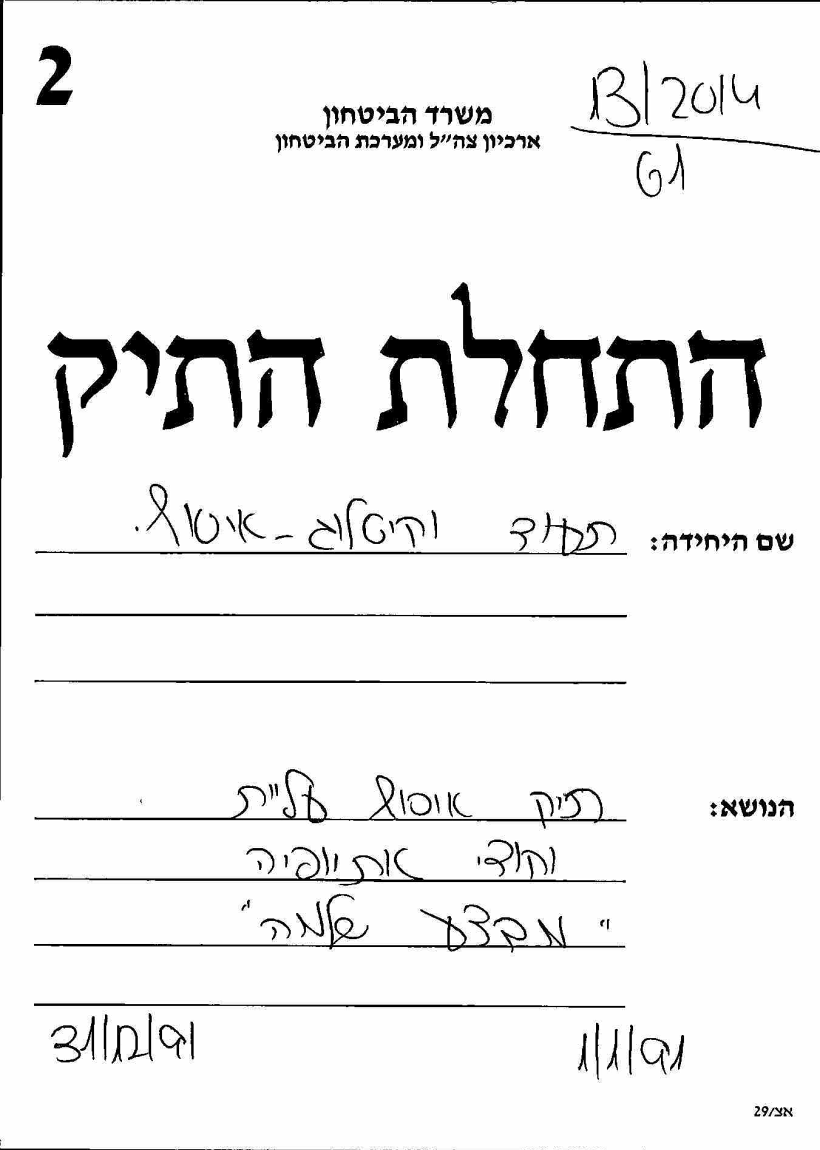 2
משרד הביטחון
ארכיון צה״ל ומערכת הביטחון
13/2014
61
התחלת התיק
שם היחידה: תעוד וקיטלוג - איסוף.
הנושא: תיק אוסף עליית
יהודי אתיופיה
"מבצע שלמה"
1/1/91
31/12/91
אצ/29